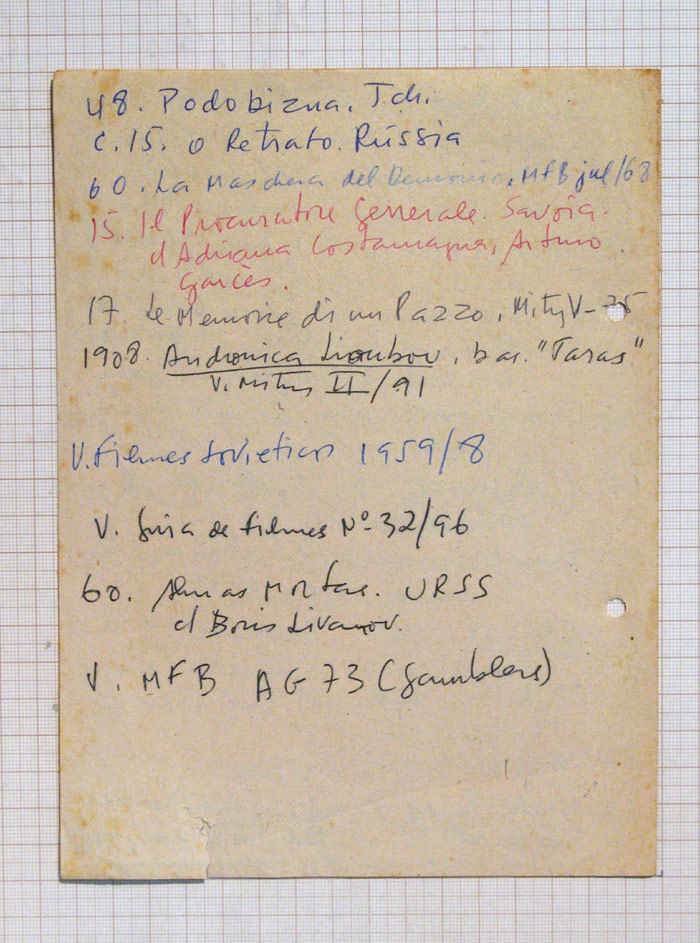 48. Podobizna. Tch.
c.15. o Retrato. Rússia
60. La Maschera del Demonio. MFB jul/68
15. Il Procuratore Generale. Savoia.
d Adriana Costamagna, Arturo
Garcès.
17. Le Memorie di un Pazzo, Mitry V-
1908. Andronica Lioubov, bas. "Taras"
V. Mitry II/91
V. Filmes Sovieticos 1959/8
V. Guia de Filmes Nº 32/96
60. Almas Mortas. URSS
d Boris Livanov.
V. MFB AG 73 (Gamblers)